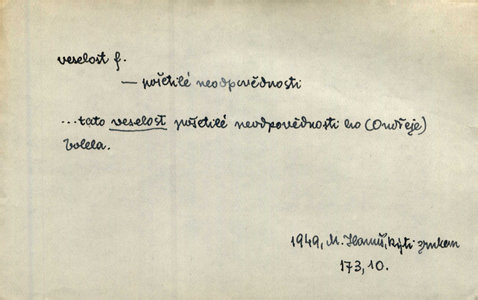 veselost f.
— pošetilé neodpovědnosti
...tato veselost pošetilé neodpovědnosti ho (Ondřeje)
bolela.
1949, M. Hanuš, Býti zrnkem
173, 10.